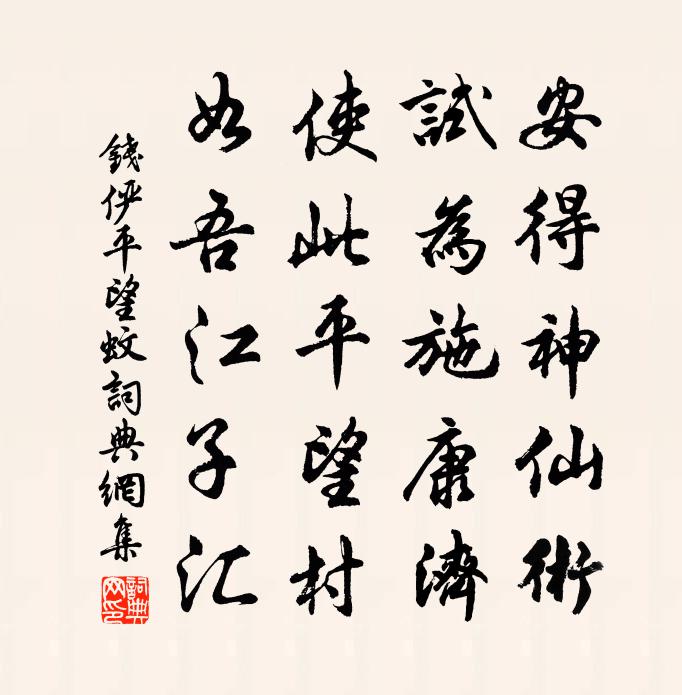 安得神仙術
試為施康濟
使此平望村
如吾江子汇
錢俨平望蚊詞典網集
詞典网印